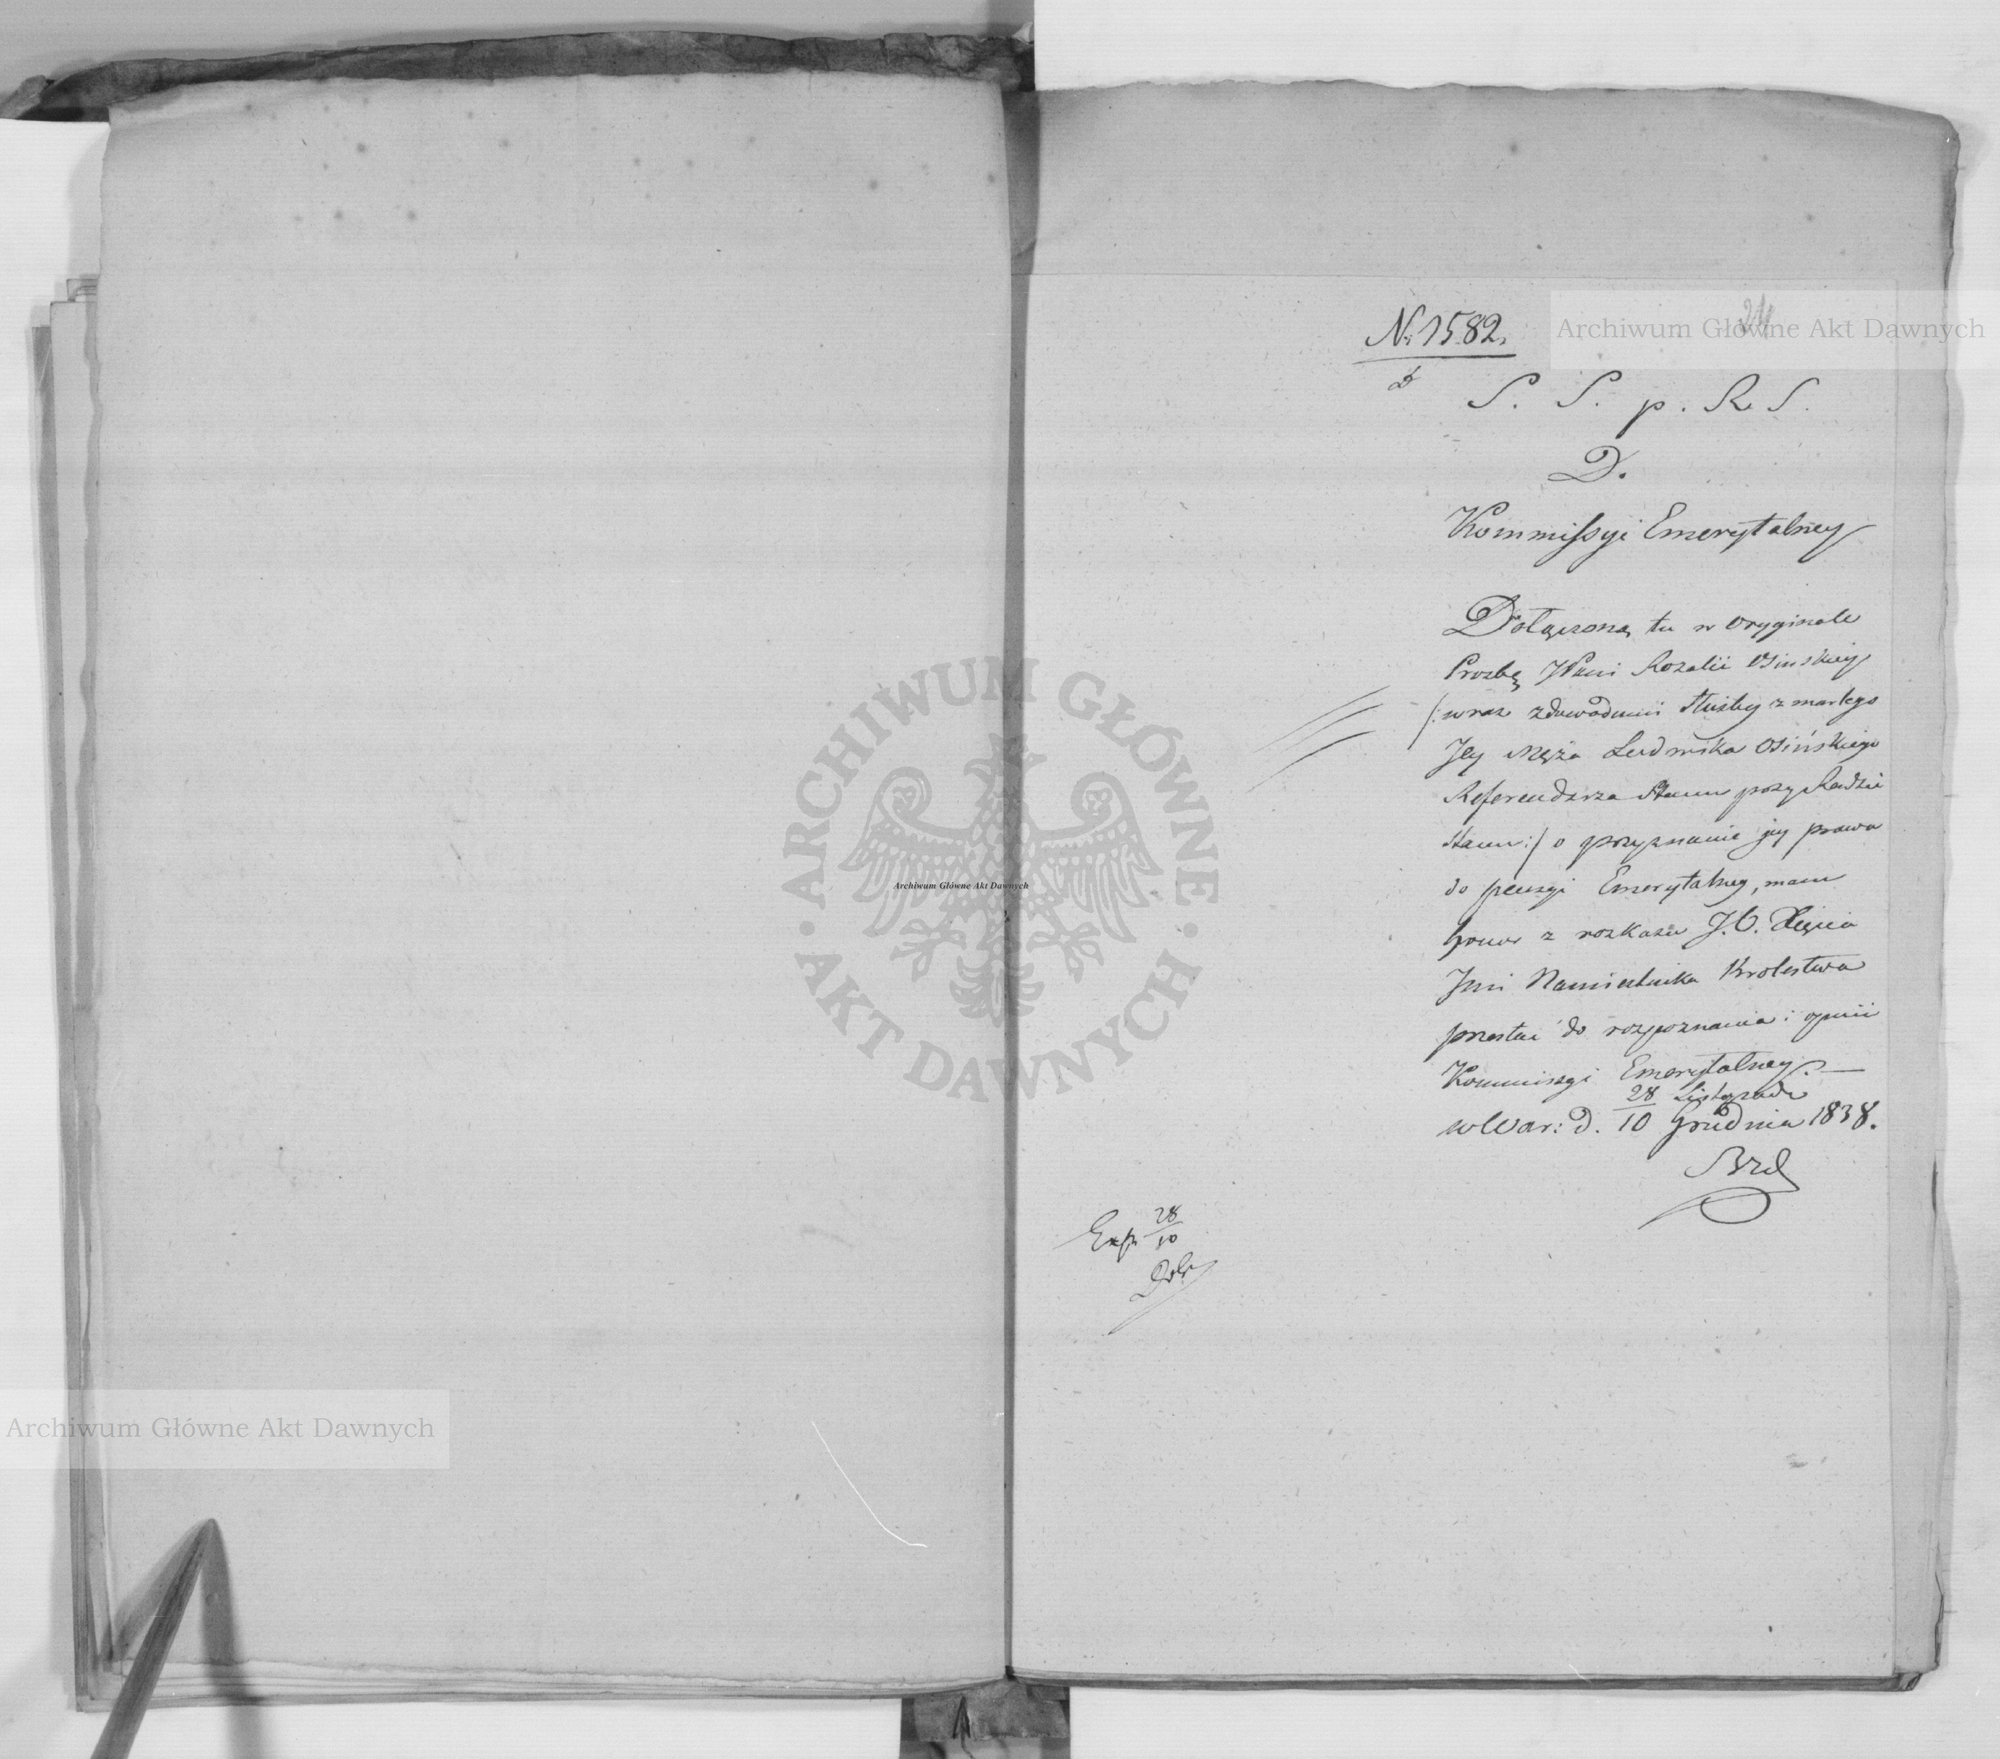 24
N: 1582.
S. S. p. R S.
D.
Kommissyi Emerytalney
Dołączoną tu w Oryginale
Prozbę JPani Rozalii Osińskiey
/: wraz z dowodami służby zmarłego
Jey Męża Ludwika Osińskiego
Referendarza Stanu przy Radzie
Stanu :/ o przyznanie jey prawa
do pensyi Emerytalney, mam
honor z rozkazu J. O. Xięcia
Jmci Namiestnika Krolestwa
przesłać do rozpoznania i opinii
Kommissyi Emerytalney. —
28 Listopada
w War: d. 10 Grudnia 1838.
Exp. 28
10
Archiwum Główne Akt Dawnych
Archiwum Główne Akt Dawnych
Archiwum Główne Akt Dawnych
ARCHIWUM GŁÓWNE · AKT DAWNYCH ·